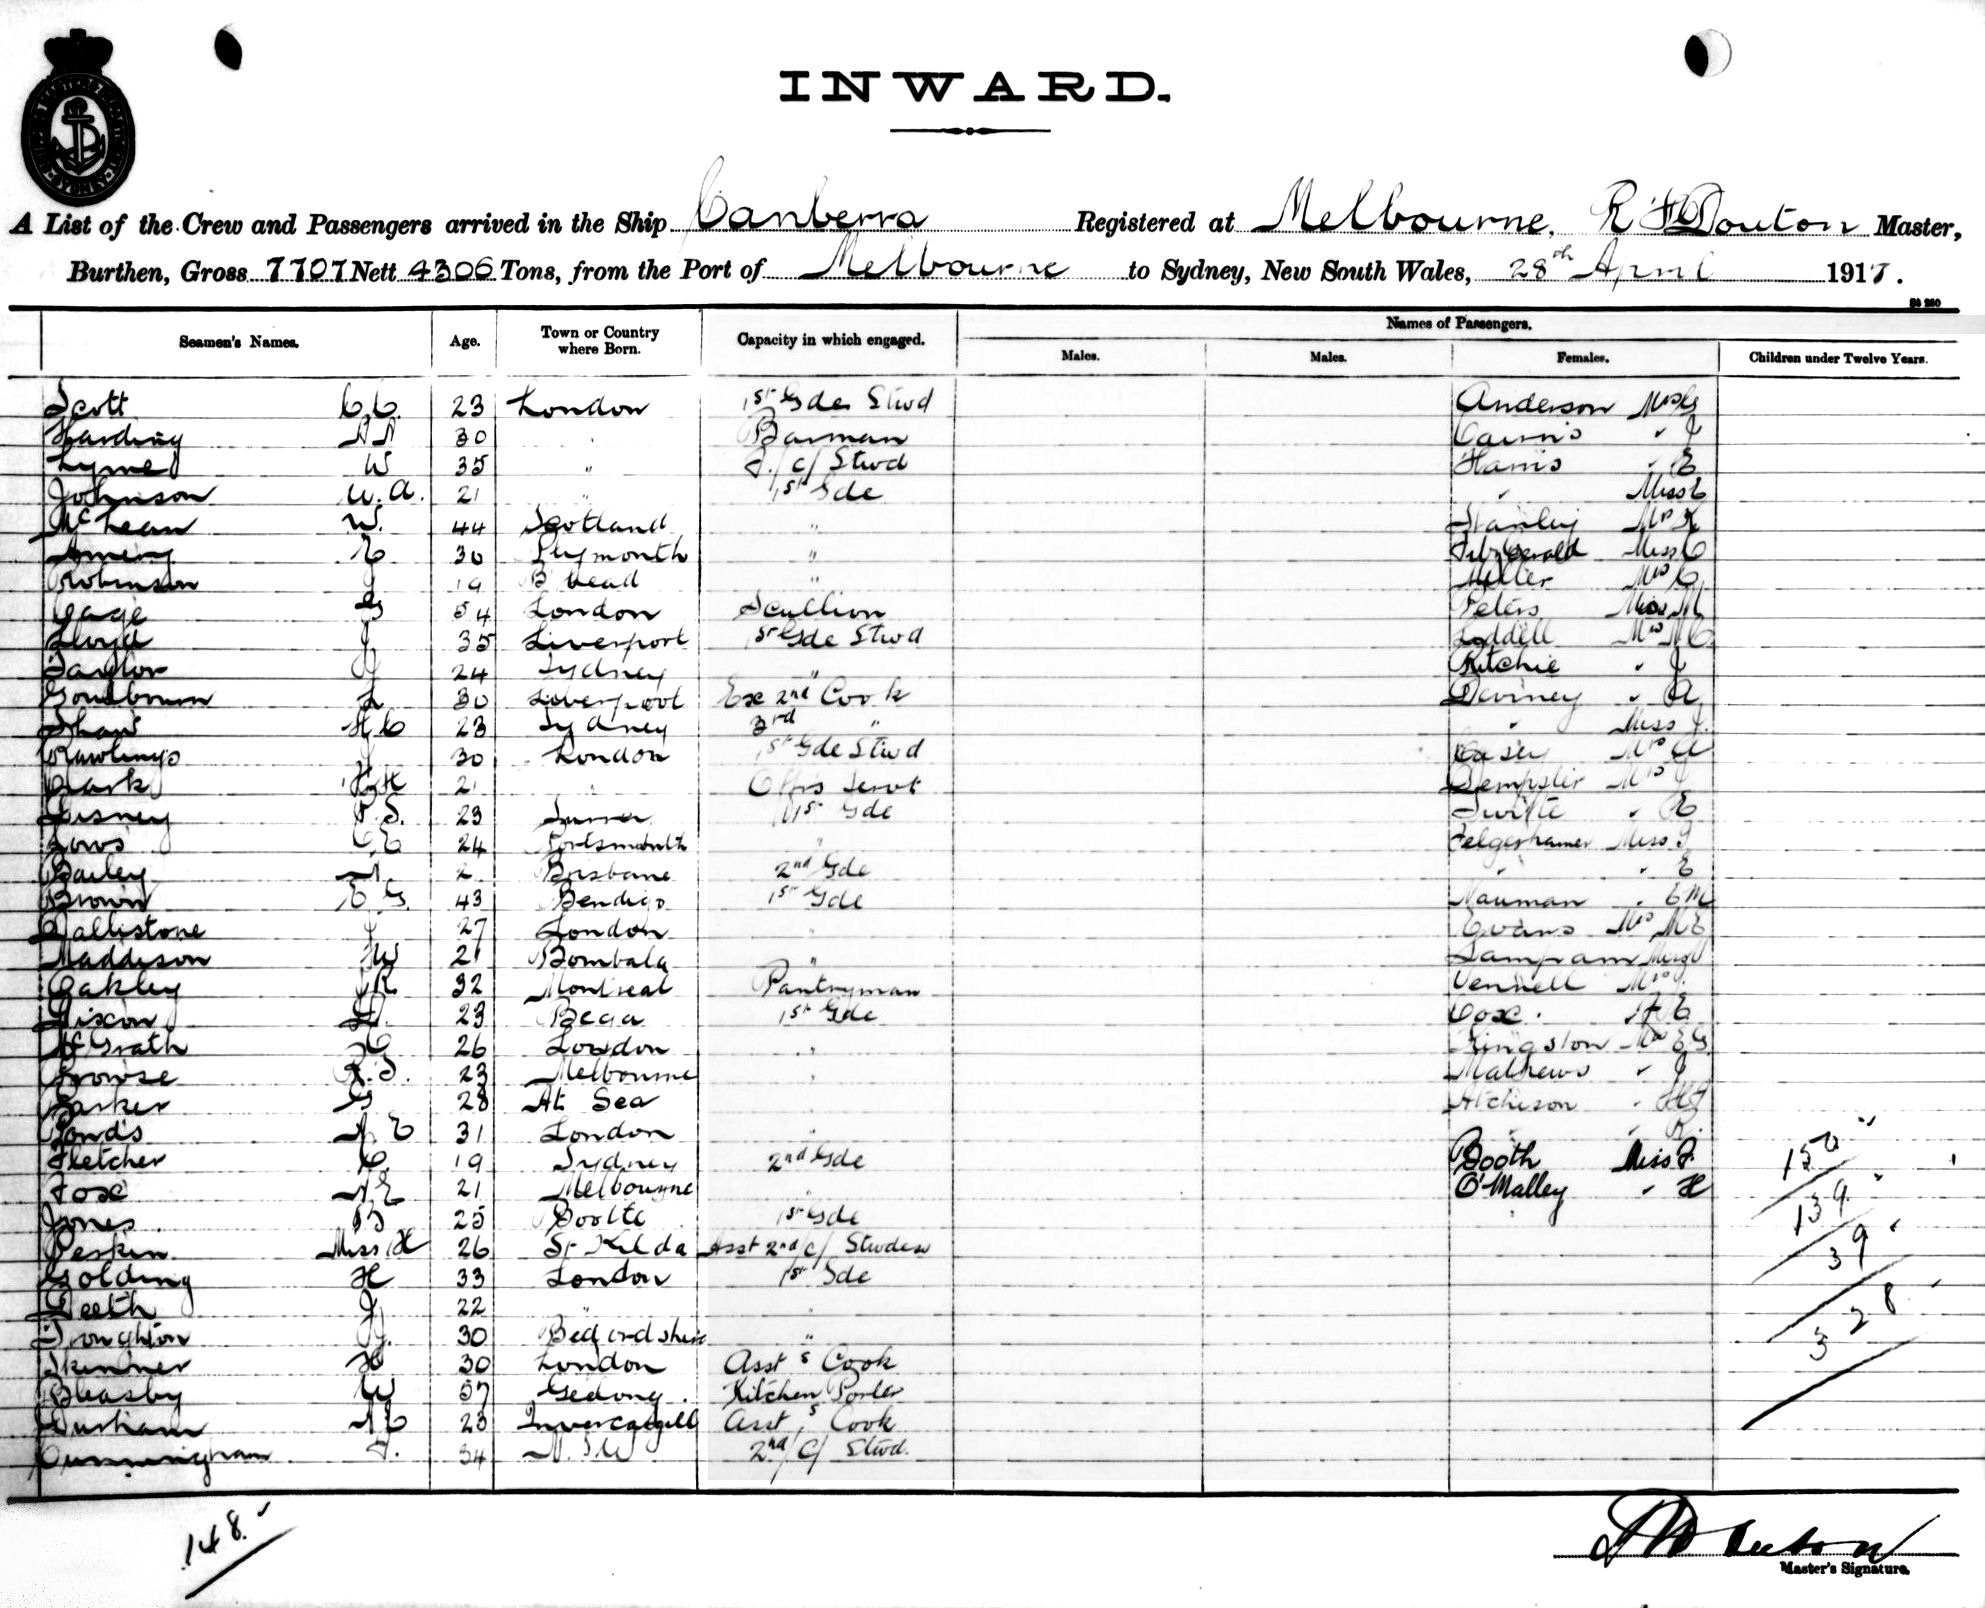 INWARD.
A List of the Crew and Passengers arrived in the Ship Canberra Registered at Melbourne, R Douton Master,
Burthen, Gross 7707 Nett 4306 Tons, from the Port of Melbourne to Sydney, New South Wales, 28th April 1917.
Names of Passengers.
Seamen's Names. Age. Town or Country where Born. Capacity in which engaged. Males. Males. Females. Children under Twelve Years.
Scott C.C. 23 London 1st Gde Stwd Anderson Mrs G
Harding 30 " Barman Cairns " J
Lyme W 35 " 2/c/ Stwd Harris " E
Johnson W.A. 21 " 1st Gde " Miss E
McLean W. 44 Scotland " Stanley Mrs K
Amery E 30 Plymouth " Fitzgerald Miss C
Robinson J 19 B head " Miller Mrs C
Gage G 54 London Scullion Peters Miss M
Lloyd J 35 Liverpool 1st Gde Stwd Liddell Mrs M C
Taylor J 24 Sydney " Ritchie " J
Goulbourn L 30 Liverpool Ex 2nd Cook Deviney " A
Shaw H.C 23 Sydney 3rd " " Miss J.
Rawlings J 30 London 1st Gde Stwd Casey Mrs A
Clark H.H 21 " Offrs Servt Dempster Mrs J
Disney P.S. 23 1st Gde Swifte " E
Jows C.E 24 Portsmouth " Felgerhamer Miss J
Bailey A 2 Brisbane 2nd Gde " " E
Brown E G. 43 Bendigo 1st Gde Nauman " E M
Callistone J 27 London " Evans Mrs M E
Maddison W 21 Bombala " Lampram Miss
Oakley R 32 Montreal Pantryman Vennell Mrs J.
Dixon D. 23 Bega 1st Gde Cox " F E
McGrath C 26 London " Kingston Mrs E G.
Prowse R.S. 23 Melbourne " Mathews " J
Parker G 28 At Sea " Atchison "
Ponds A E 31 London " " " R.
Fletcher C. 19 Sydney 2nd Gde Booth Miss J.
Fox A E 21 Melbourne " O'Malley " H
Jones B 25 Boolte 1st Gde
Perkin Miss H 26 St Kilda Asst 2nd/c/ Stwdess
Golding H 33 London 1st Gde
Deeth J 22 " "
Troughton J. 30 Bedfordshire "
Skinner H 30 London Asst s Cook
Bleasby W 57 Geelong. Kitchen Porter
Durham A C 23 Invercargill Asst s Cook
Cunningham J. 34 N.S.W 2nd/C/ Stwd.
150
139
39
328
148.
Master's Signature.